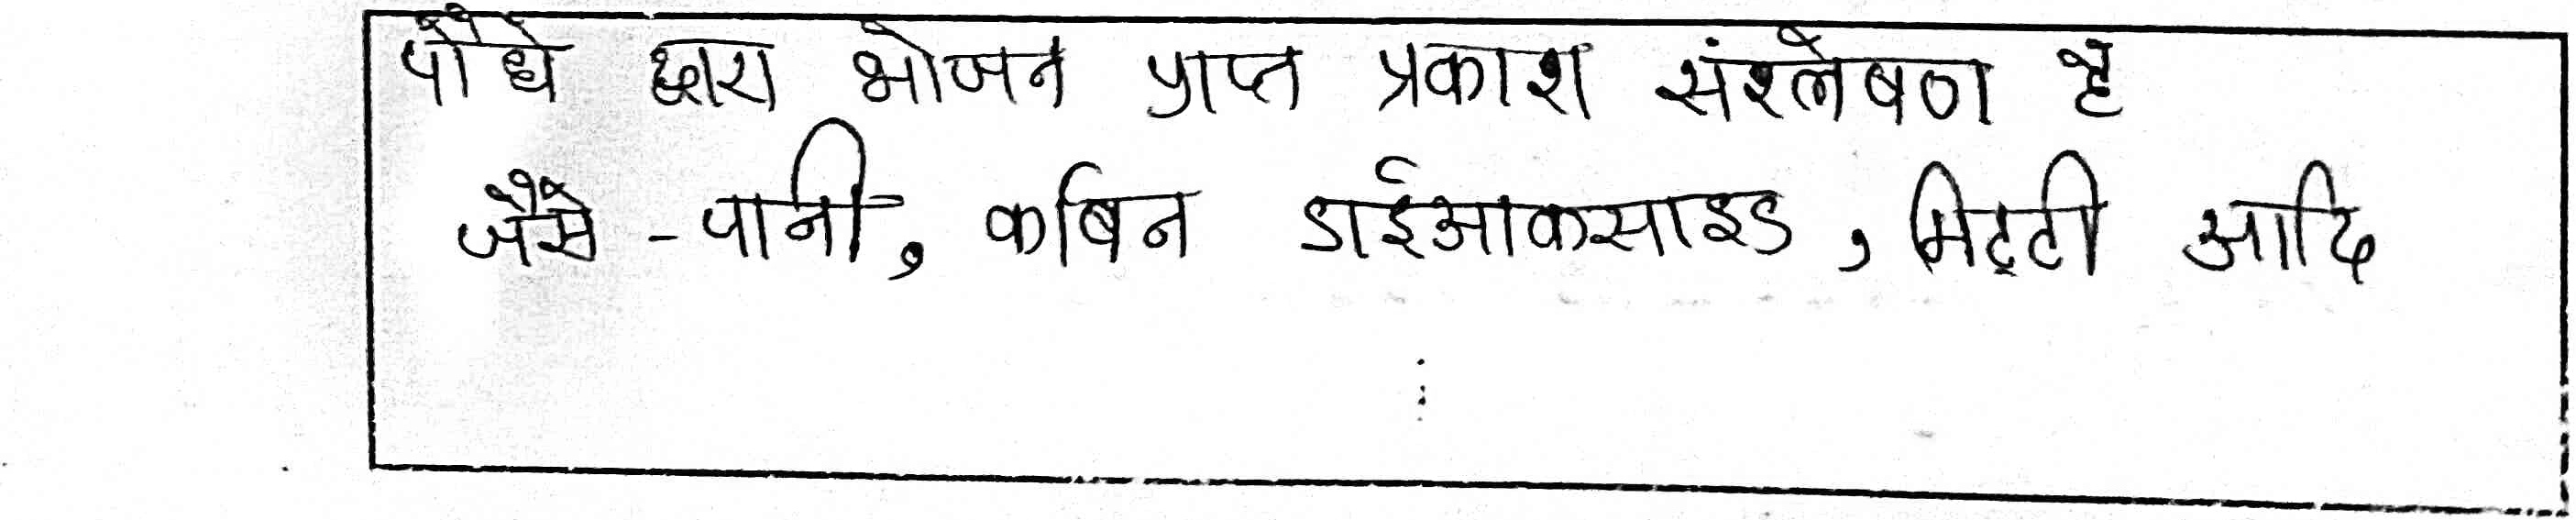 पौधे द्वारा भोजन प्राप्त प्रकाश संश्लेषण है
जैसे - पानी, कर्बिन डाईआकसाइड, मिट्टी आदि